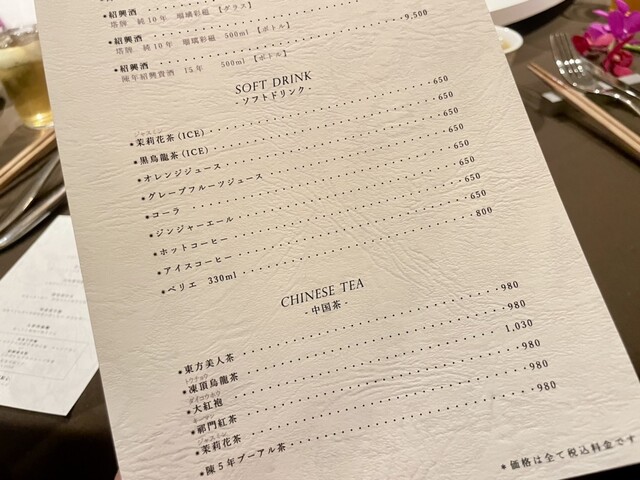 ●紹興酒
塔牌 純10年 瑠璃彩磁 【グラス】
●紹興酒
塔牌 純10年 瑠璃彩磁 500ml 【ボトル】
●紹興酒 9,500
陳年紹興貴酒 15年 500ml 【ボトル】
SOFT DRINK
- ソフトドリンク -
ジャスミン
●茉莉花茶(ICE) 650
●黒烏龍茶(ICE) 650
●オレンジジュース 650
●グレープフルーツジュース 650
●コーラ 650
●ジンジャーエール 650
●ホットコーヒー 650
●アイスコーヒー 650
●ペリエ 330ml 800
CHINESE TEA
- 中国茶 -
●東方美人茶 980
トウチョウ
●凍頂烏龍茶 980
ダイコウホウ
●大紅袍 1,030
キーマン
●祁門紅茶 980
ジャスミン
●茉莉花茶 980
●陳5年プーアル茶 980
●価格は全て税込料金です